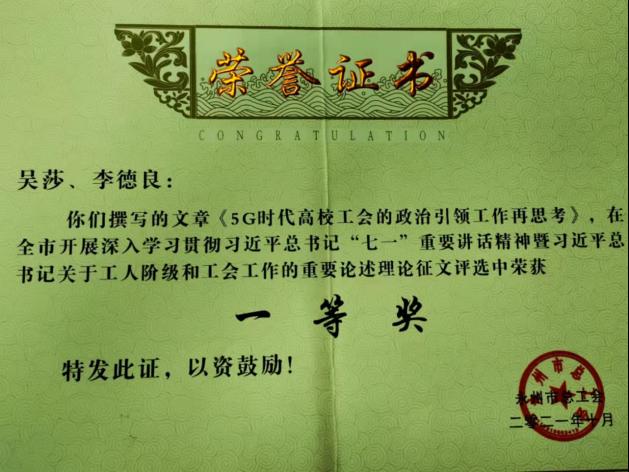 荣誉证书
CONGRATULATION
吴莎、李德良：
你们撰写的文章《5G时代高校工会的政治引领工作再思考》，在
全市开展深入学习贯彻习近平总书记“七一”重要讲话精神暨习近平总
书记关于工人阶级和工会工作的重要论述理论征文评选中荣获
一等奖
特发此证，以资鼓励！
永州市总工会
二零二一年十月